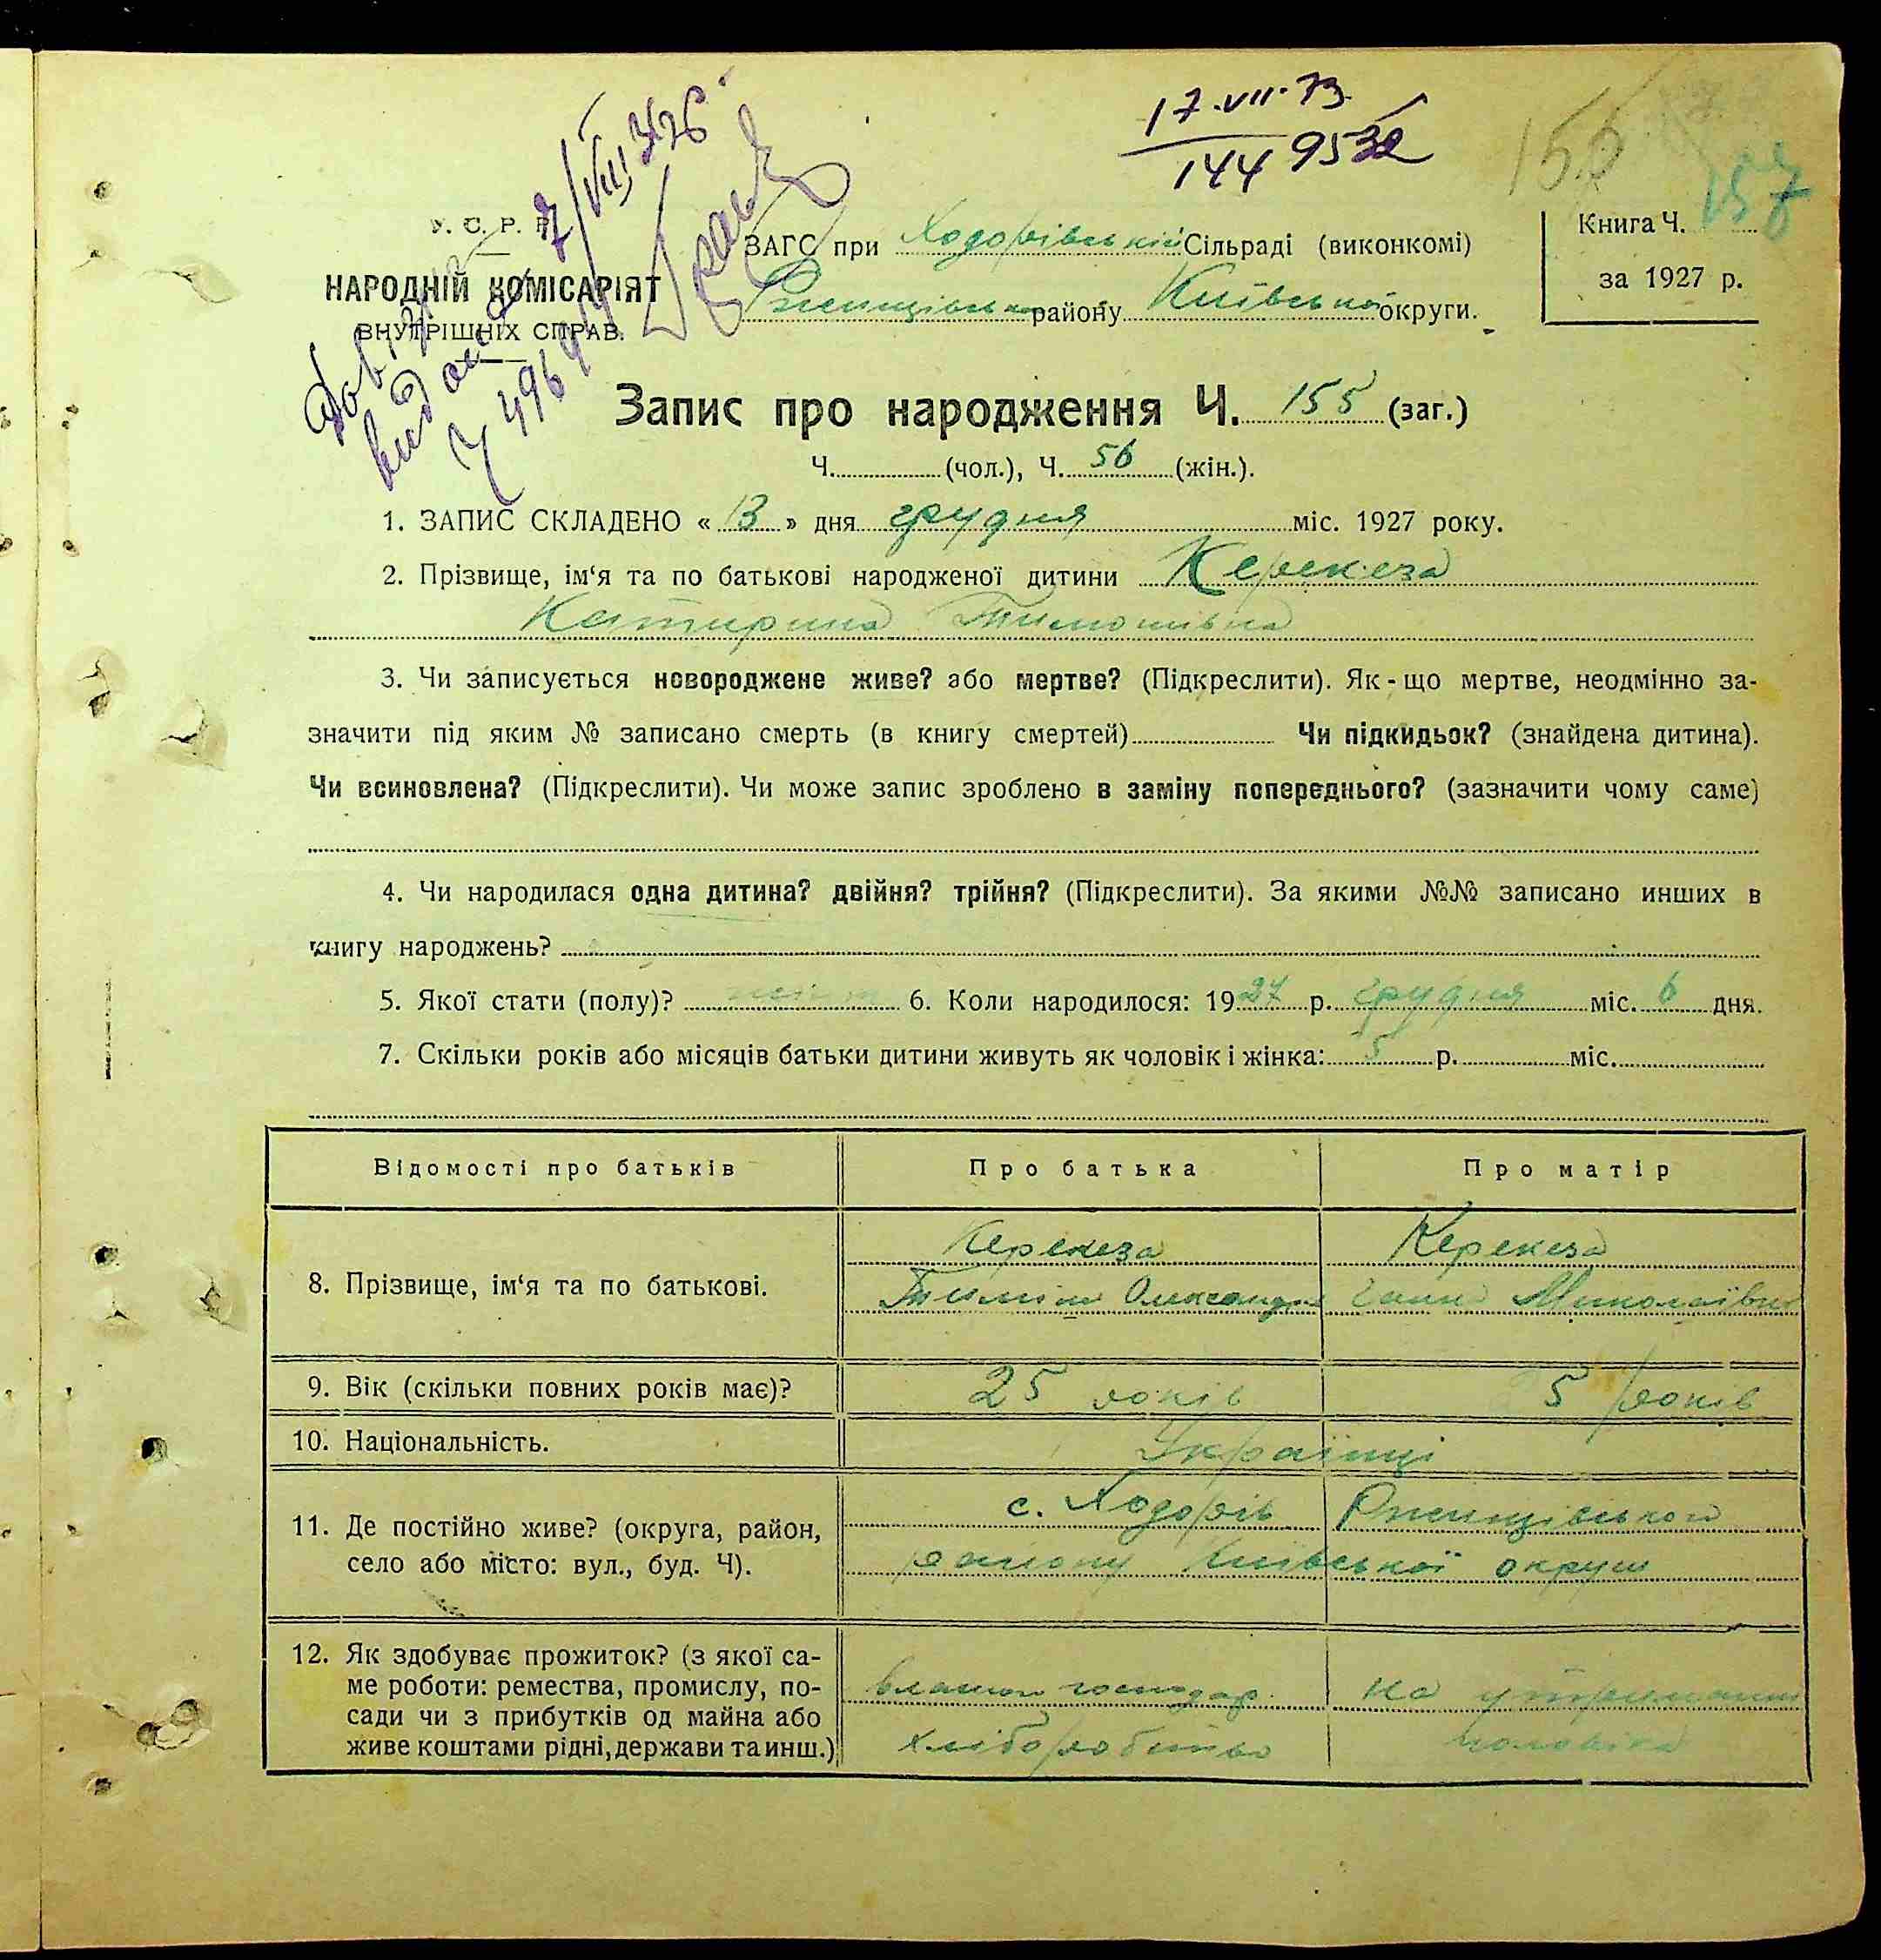 17.VII.73
144 9532
156
157
У. С. Р. Р.
НАРОДНІЙ КОМІСАРІЯТ
ВНУТРІШНІХ СПРАВ.
ЗАГС при Ходорівській Сільраді (виконкомі)
Ржищівськ району Київської округи.
Книга Ч.
за 1927 р.
Запис про народження Ч. 155 (заг.)
Ч. (чол.), Ч. 56 (жін.).
1. ЗАПИС СКЛАДЕНО « 13 » дня грудня міс. 1927 року.
2. Прізвище, ім‘я та по батькові народженої дитини Керекеза
Катирина Тимошівна
3. Чи записується новороджене живе? або мертве? (Підкреслити). Як-що мертве, неодмінно за-
значити під яким № записано смерть (в книгу смертей) Чи підкидьок? (знайдена дитина).
Чи всиновлена? (Підкреслити). Чи може запис зроблено в заміну попереднього? (зазначити чому саме)
4. Чи народилася одна дитина? двійня? трійня? (Підкреслити). За якими №№ записано инших в
книгу народжень?
5. Якої стати (полу)? 6. Коли народилося: 1927 р. грудня міс. 6 дня.
7. Скільки років або місяців батьки дитини живуть як чоловік і жінка: 5 р. міс.
Відомості про батьків Про батька Про матір
8. Прізвище, ім‘я та по батькові.
Керекеза Керекеза
Тиміш Олександр Ганна Миколаївна
9. Вік (скільки повних років має)? 25 років 5 років
10. Національність. Українці
11. Де постійно живе? (округа, район,
село або місто: вул., буд. Ч).
с. Ходорів Ржищівського
району Київської округи
12. Як здобуває прожиток? (з якої са-
ме роботи: ремества, промислу, по-
сади чи з прибутків од майна або
живе коштами рідні, держави та инш.)
власне господар. на утриманні
хліборобство чоловіка